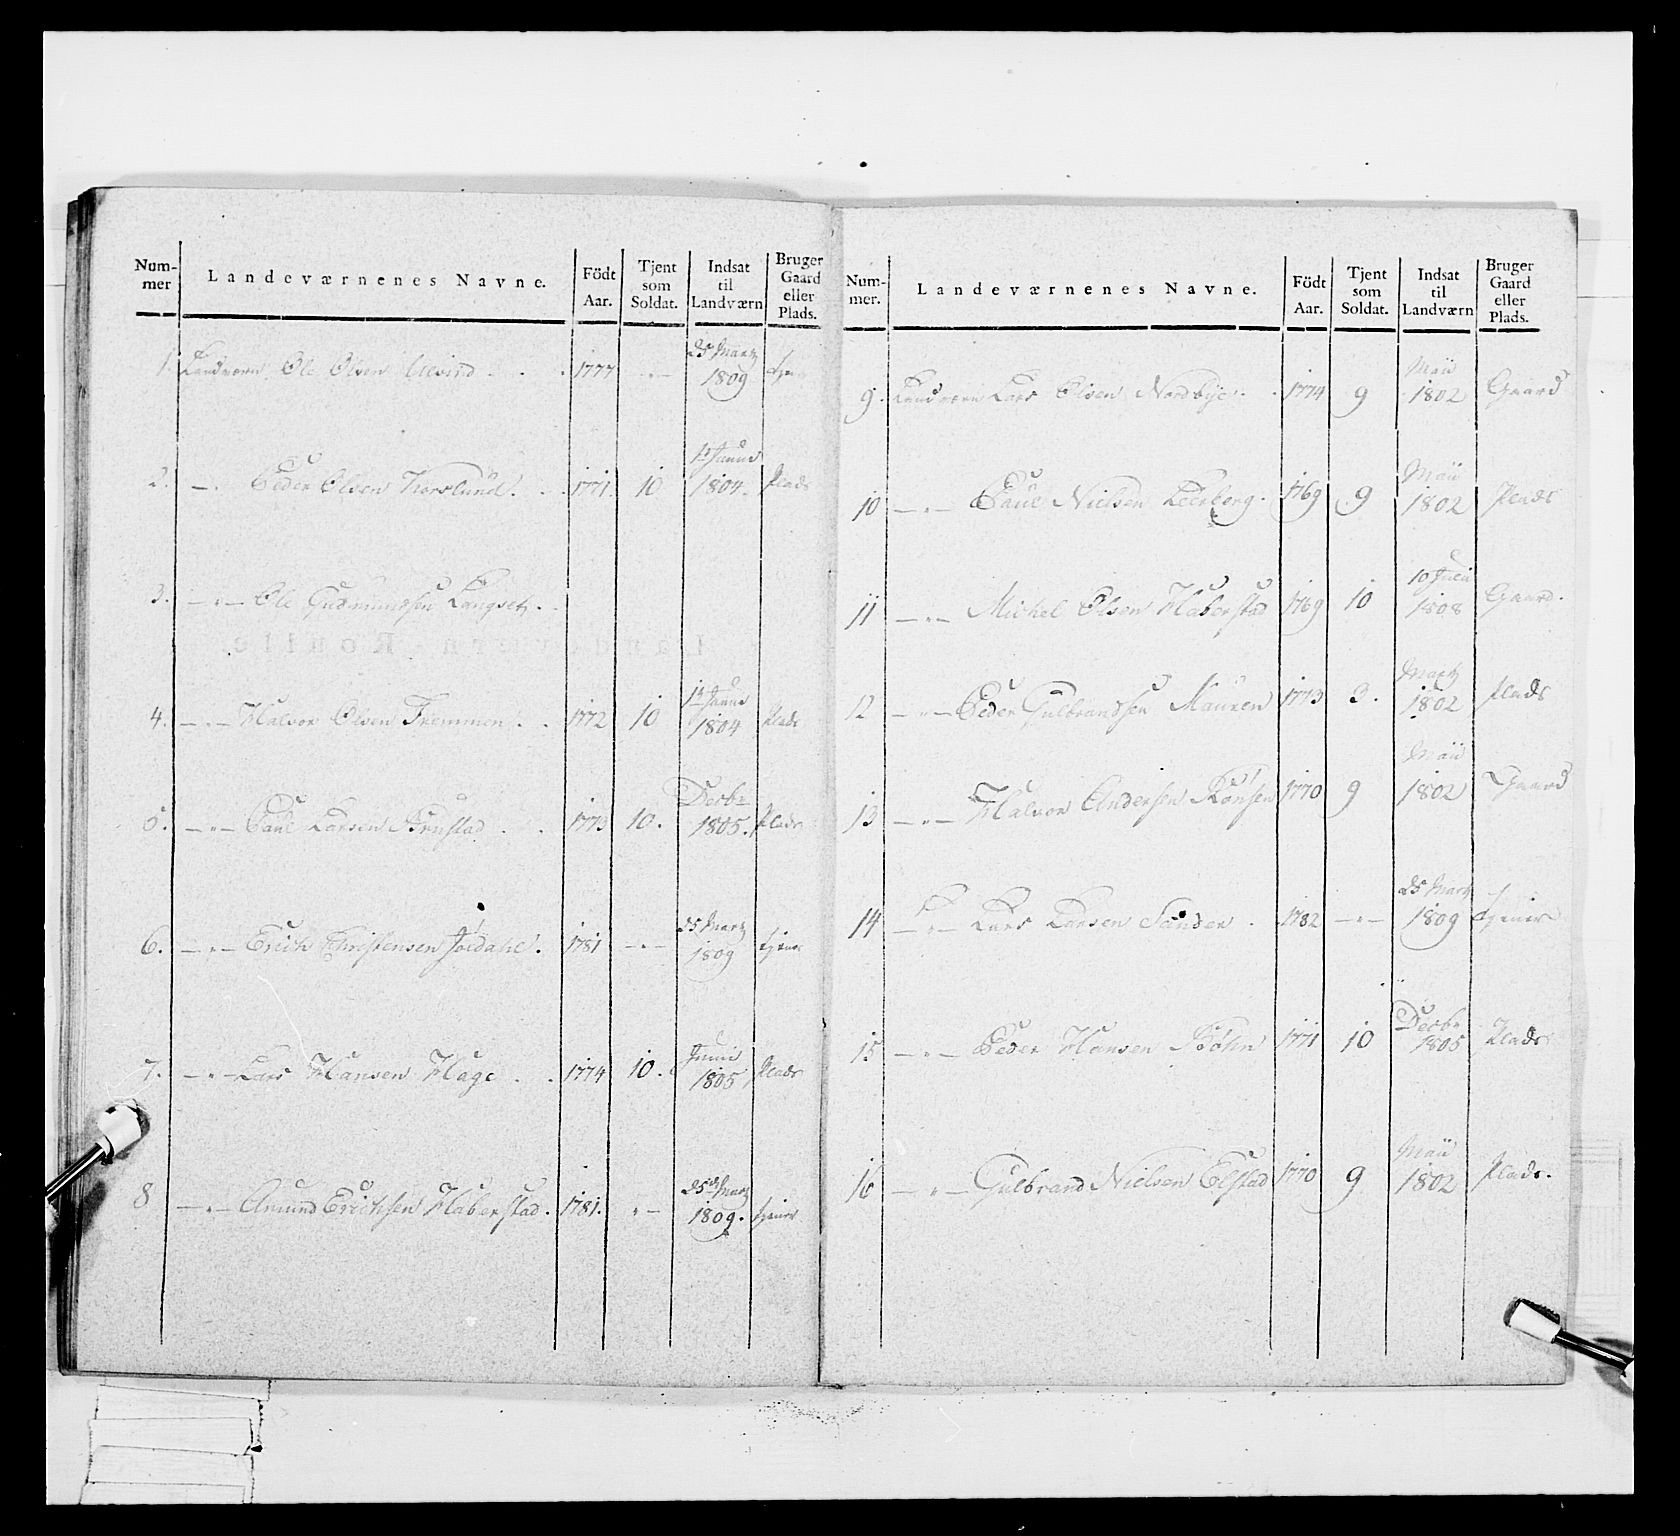 Num-
mer
Landeværnenes Navne.
Födt
Aar.
Tjent
som
Soldat.
Indsat
til
Landværn
Bruger
Gaard
eller
Plads.
25 Martz
1. Landværn Ole Olsen 1777 -"- 1809 tjener
1ste Junii
2. -"- Peder Olsen Torslund. 1771. 10 1804. Plads
3. -"- Ole Gudmundsen Langset.
1ste Junii
4. -"- Halvor Olsen Fremmen. 1772 10 1804 Plads
Decbr
5. -"- Paul Larsen Arnstad 1773 10. 1805. Plads
25 Martz
6. -"- Erich Christensen 1781 -"- 1809 tjener
Junii
7. -"- Lars Hansen Hage 1774 10. 1805 Plads
25de Martz
8 -"- Amund Erichsen Haberstad. 1781. "- 1809. tjener
Num-
mer.
Landeværnenes Navne.
Födt
Aar.
Tjent
som
Soldat.
Indsat
til
Landværn
Bruger
Gaard
eller
Plads.
Maii
9. Landværn Lars Olsen Nordbye. 1774 9 1802 Gaard
Maii
10 -"- Paul Nielsen Leerberg. 1769 9 1802 Plads
10 Julii
11 -"- Michel Olsen Haberstad 1769 10 1808 Gaard.
Martz
12 -"- Peder Gulbrandsen Mauren 1773 3. 1802 Plads
Maii
13 -"- Halvor Andersen Rønsen 1770 9 1802 Gaard
25 Martz
14 -"- Lars Larsen Sanden. 1782 -"- 1809 tjener
Decbr
15 -"- Peder Hansen Bøhn 1771 10 1805 Plads
Maii
16 -"- Gulbrand Nielsen Elstad 1770 9 1802 Plads.